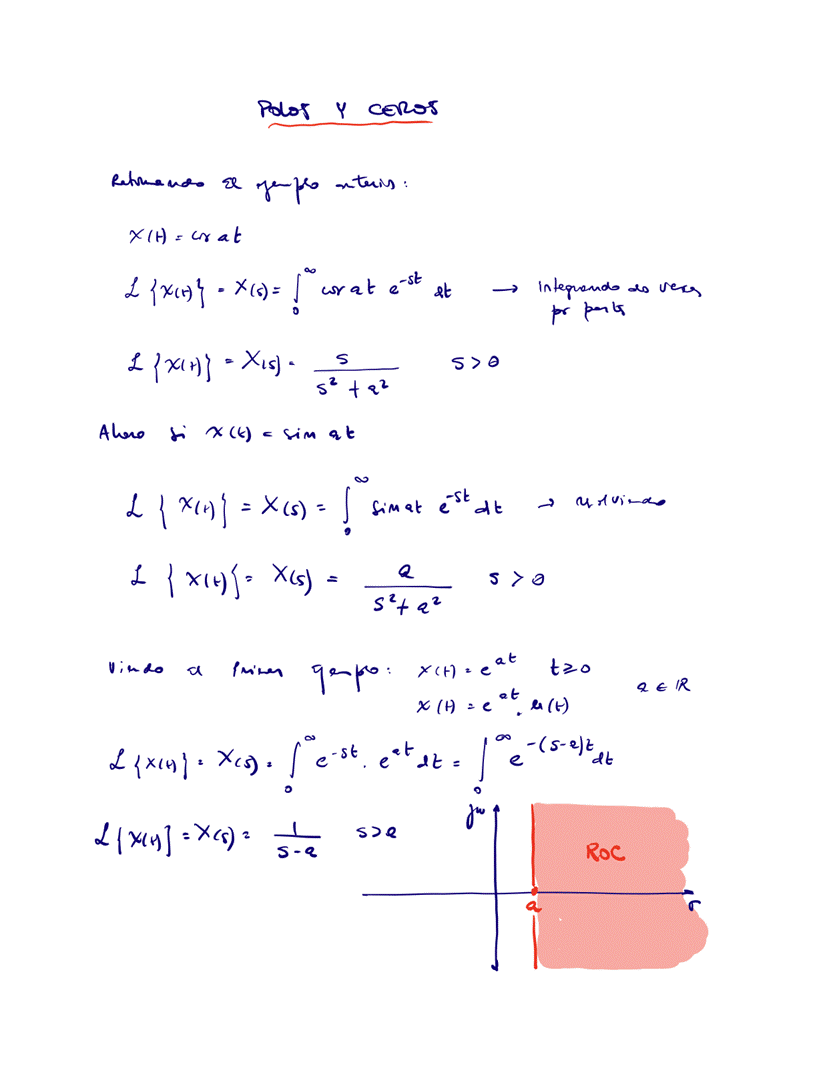 POLOS Y CEROS
Retomando el ejemplo anterior:
x(t) = cos at
ℒ {x(t)} = X(s) = ∫₀^∞ cos at e^-st dt → Integrando dos veces
por partes
ℒ {x(t)} = X(s) = s / (s² + a²) s > 0
Ahora si x(t) = sin at
ℒ {x(t)} = X(s) = ∫₀^∞ sin at e^-st dt → resolviendo
ℒ {x(t)} = X(s) = a / (s² + a²) s > 0
primer ejemplo: x(t) = e^at t ≥ 0
x(t) = e^at . u(t) a ∈ ℝ
ℒ {x(t)} = X(s) = ∫₀^∞ e^-st . e^at dt = ∫₀^∞ e^-(s-a)t dt
ℒ {x(t)] = X(s) = 1 / (s-a) s > a
jω
ROC
a
σ